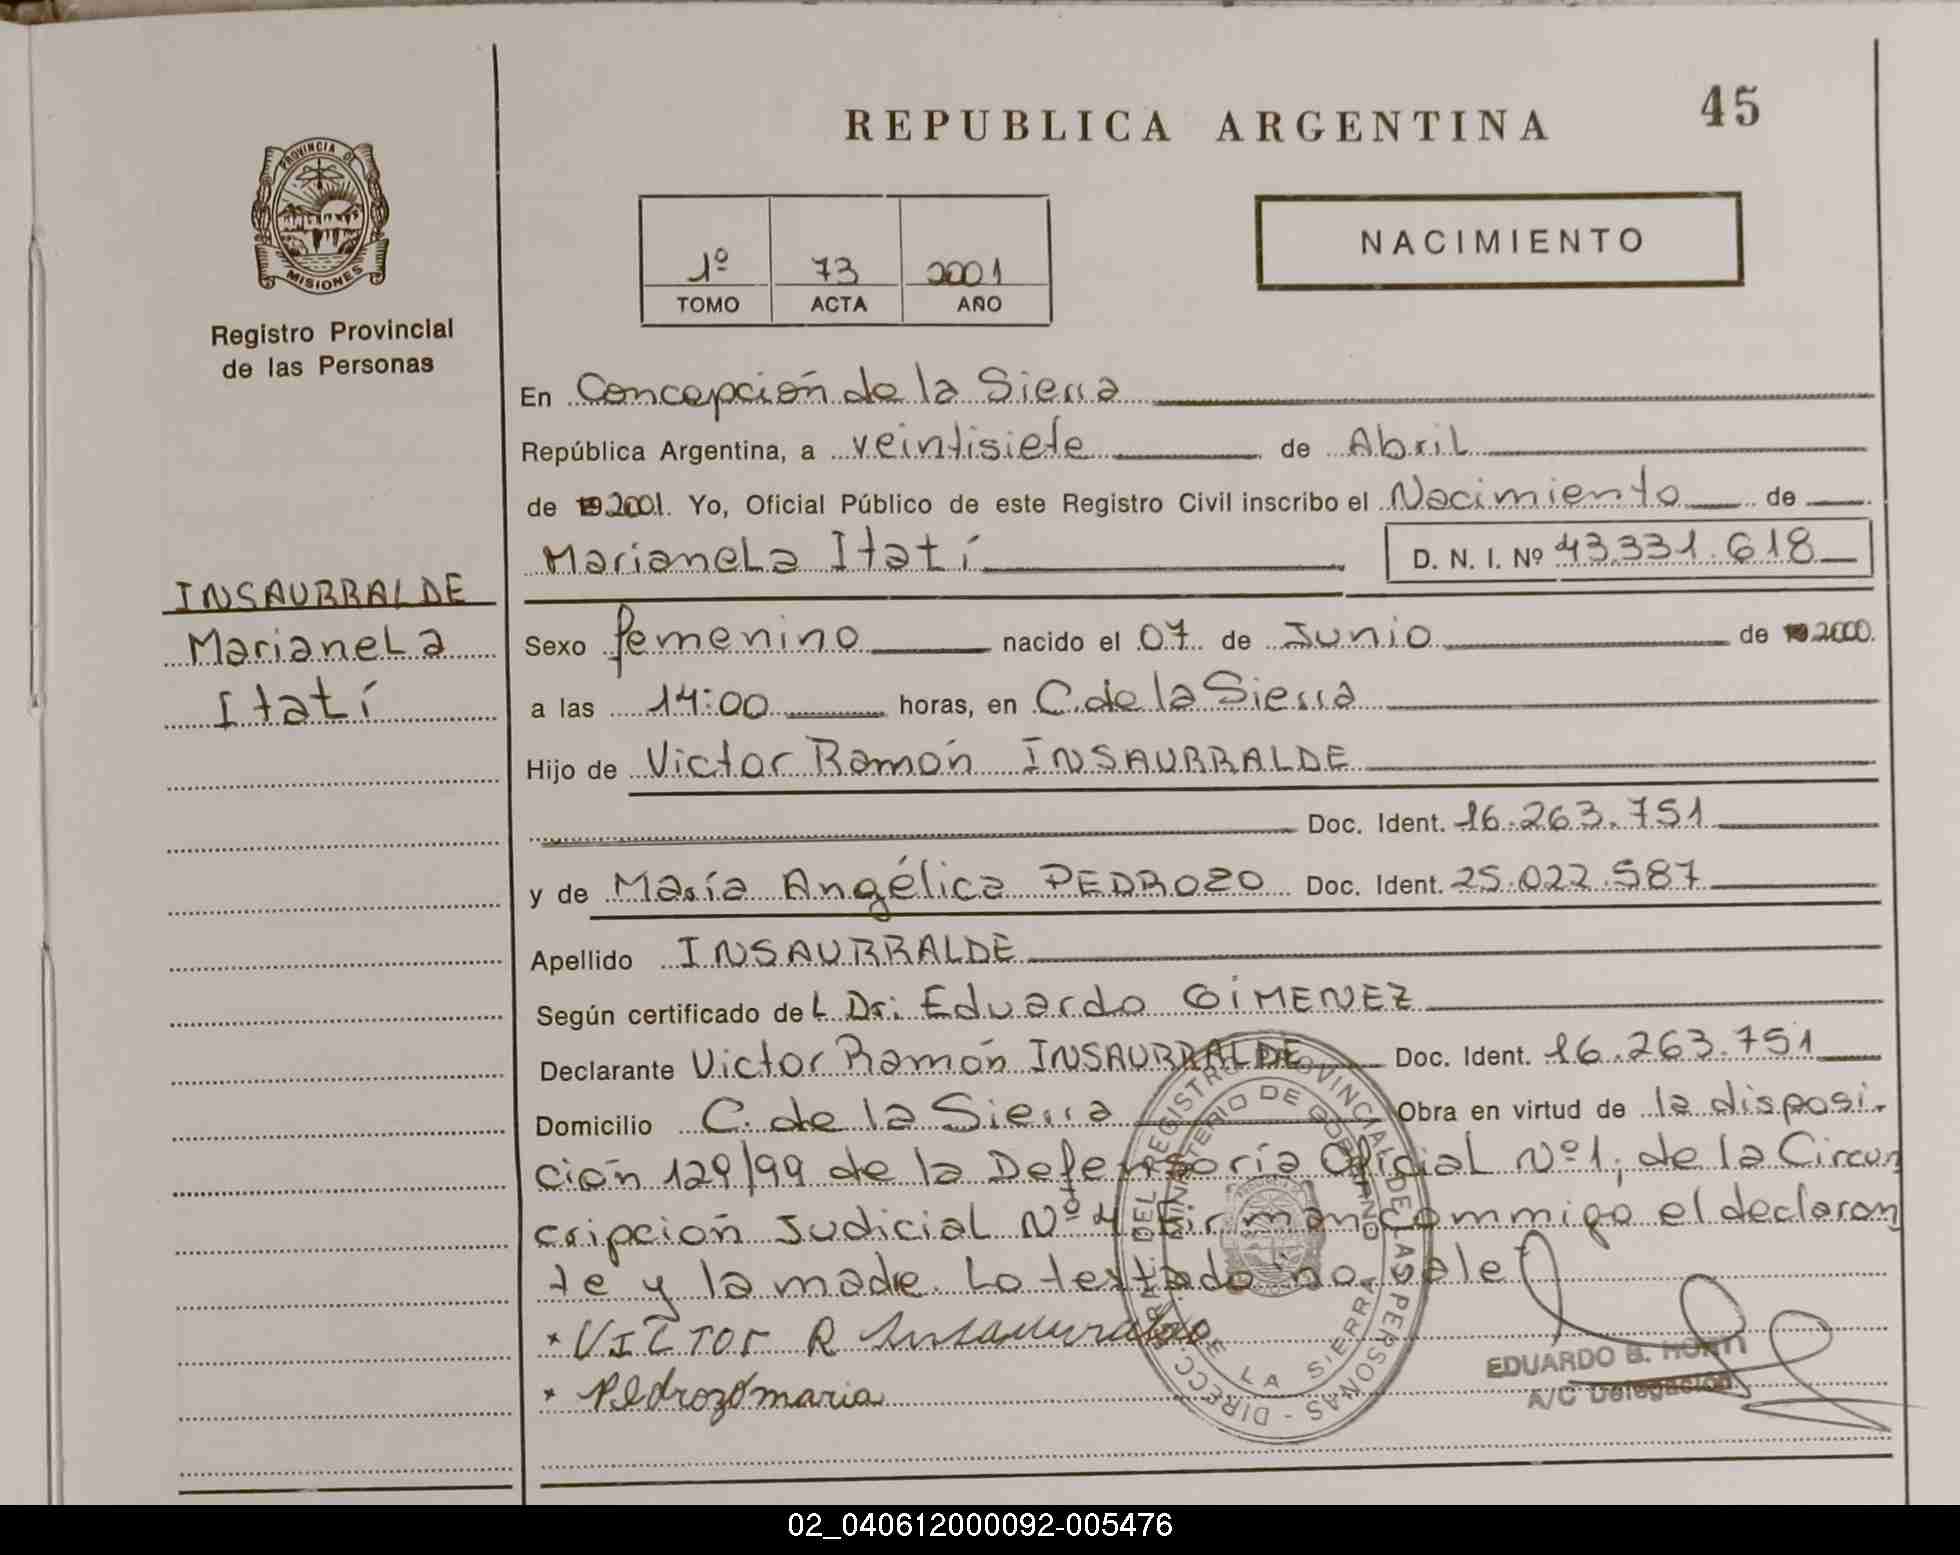 REPUBLICA ARGENTINA
45
PROVINCIA DE
MISIONES
Registro Provincial
de las Personas
1º 73 2001
TOMO ACTA AÑO
NACIMIENTO
En Concepción de la Sierra
República Argentina, a veintisiete de Abril
de 19 2001. Yo, Oficial Público de este Registro Civil inscribo el Nacimiento de
Marianela Itatí
D. N. I. Nº 43.331.618
INSAURRALDE
Marianela
Itatí
Sexo femenino nacido el 07 de Junio de 19 2000.
a las 14:00 horas, en C. de la Sierra
Hijo de Victor Ramón INSAURRALDE
Doc. Ident. 16.263.751
y de María Angélica PEDROZO Doc. Ident. 25.022.587
Apellido INSAURRALDE
Según certificado del Dr: Eduardo GIMENEZ
Declarante Victor Ramón INSAURRALDE Doc. Ident. 16.263.751
Domicilio C. de la Sierra Obra en virtud de la disposi-
ción 129/99 de la Defensoría Oficial Nº1, de la Circun
cripción Judicial Nº4 Firman commigo el declaran
te y la madre. Lo textado no vale
* VICTOR R Insaurralde
* Pedrozo maria
DIRECC. GRAL. DEL REGISTRO PROVINCIAL DE LAS PERSONAS -
MINISTERIO DE GOBIERNO
DE LA SIERRA
EDUARDO B.
A/C Delegación
02_040612000092-005476